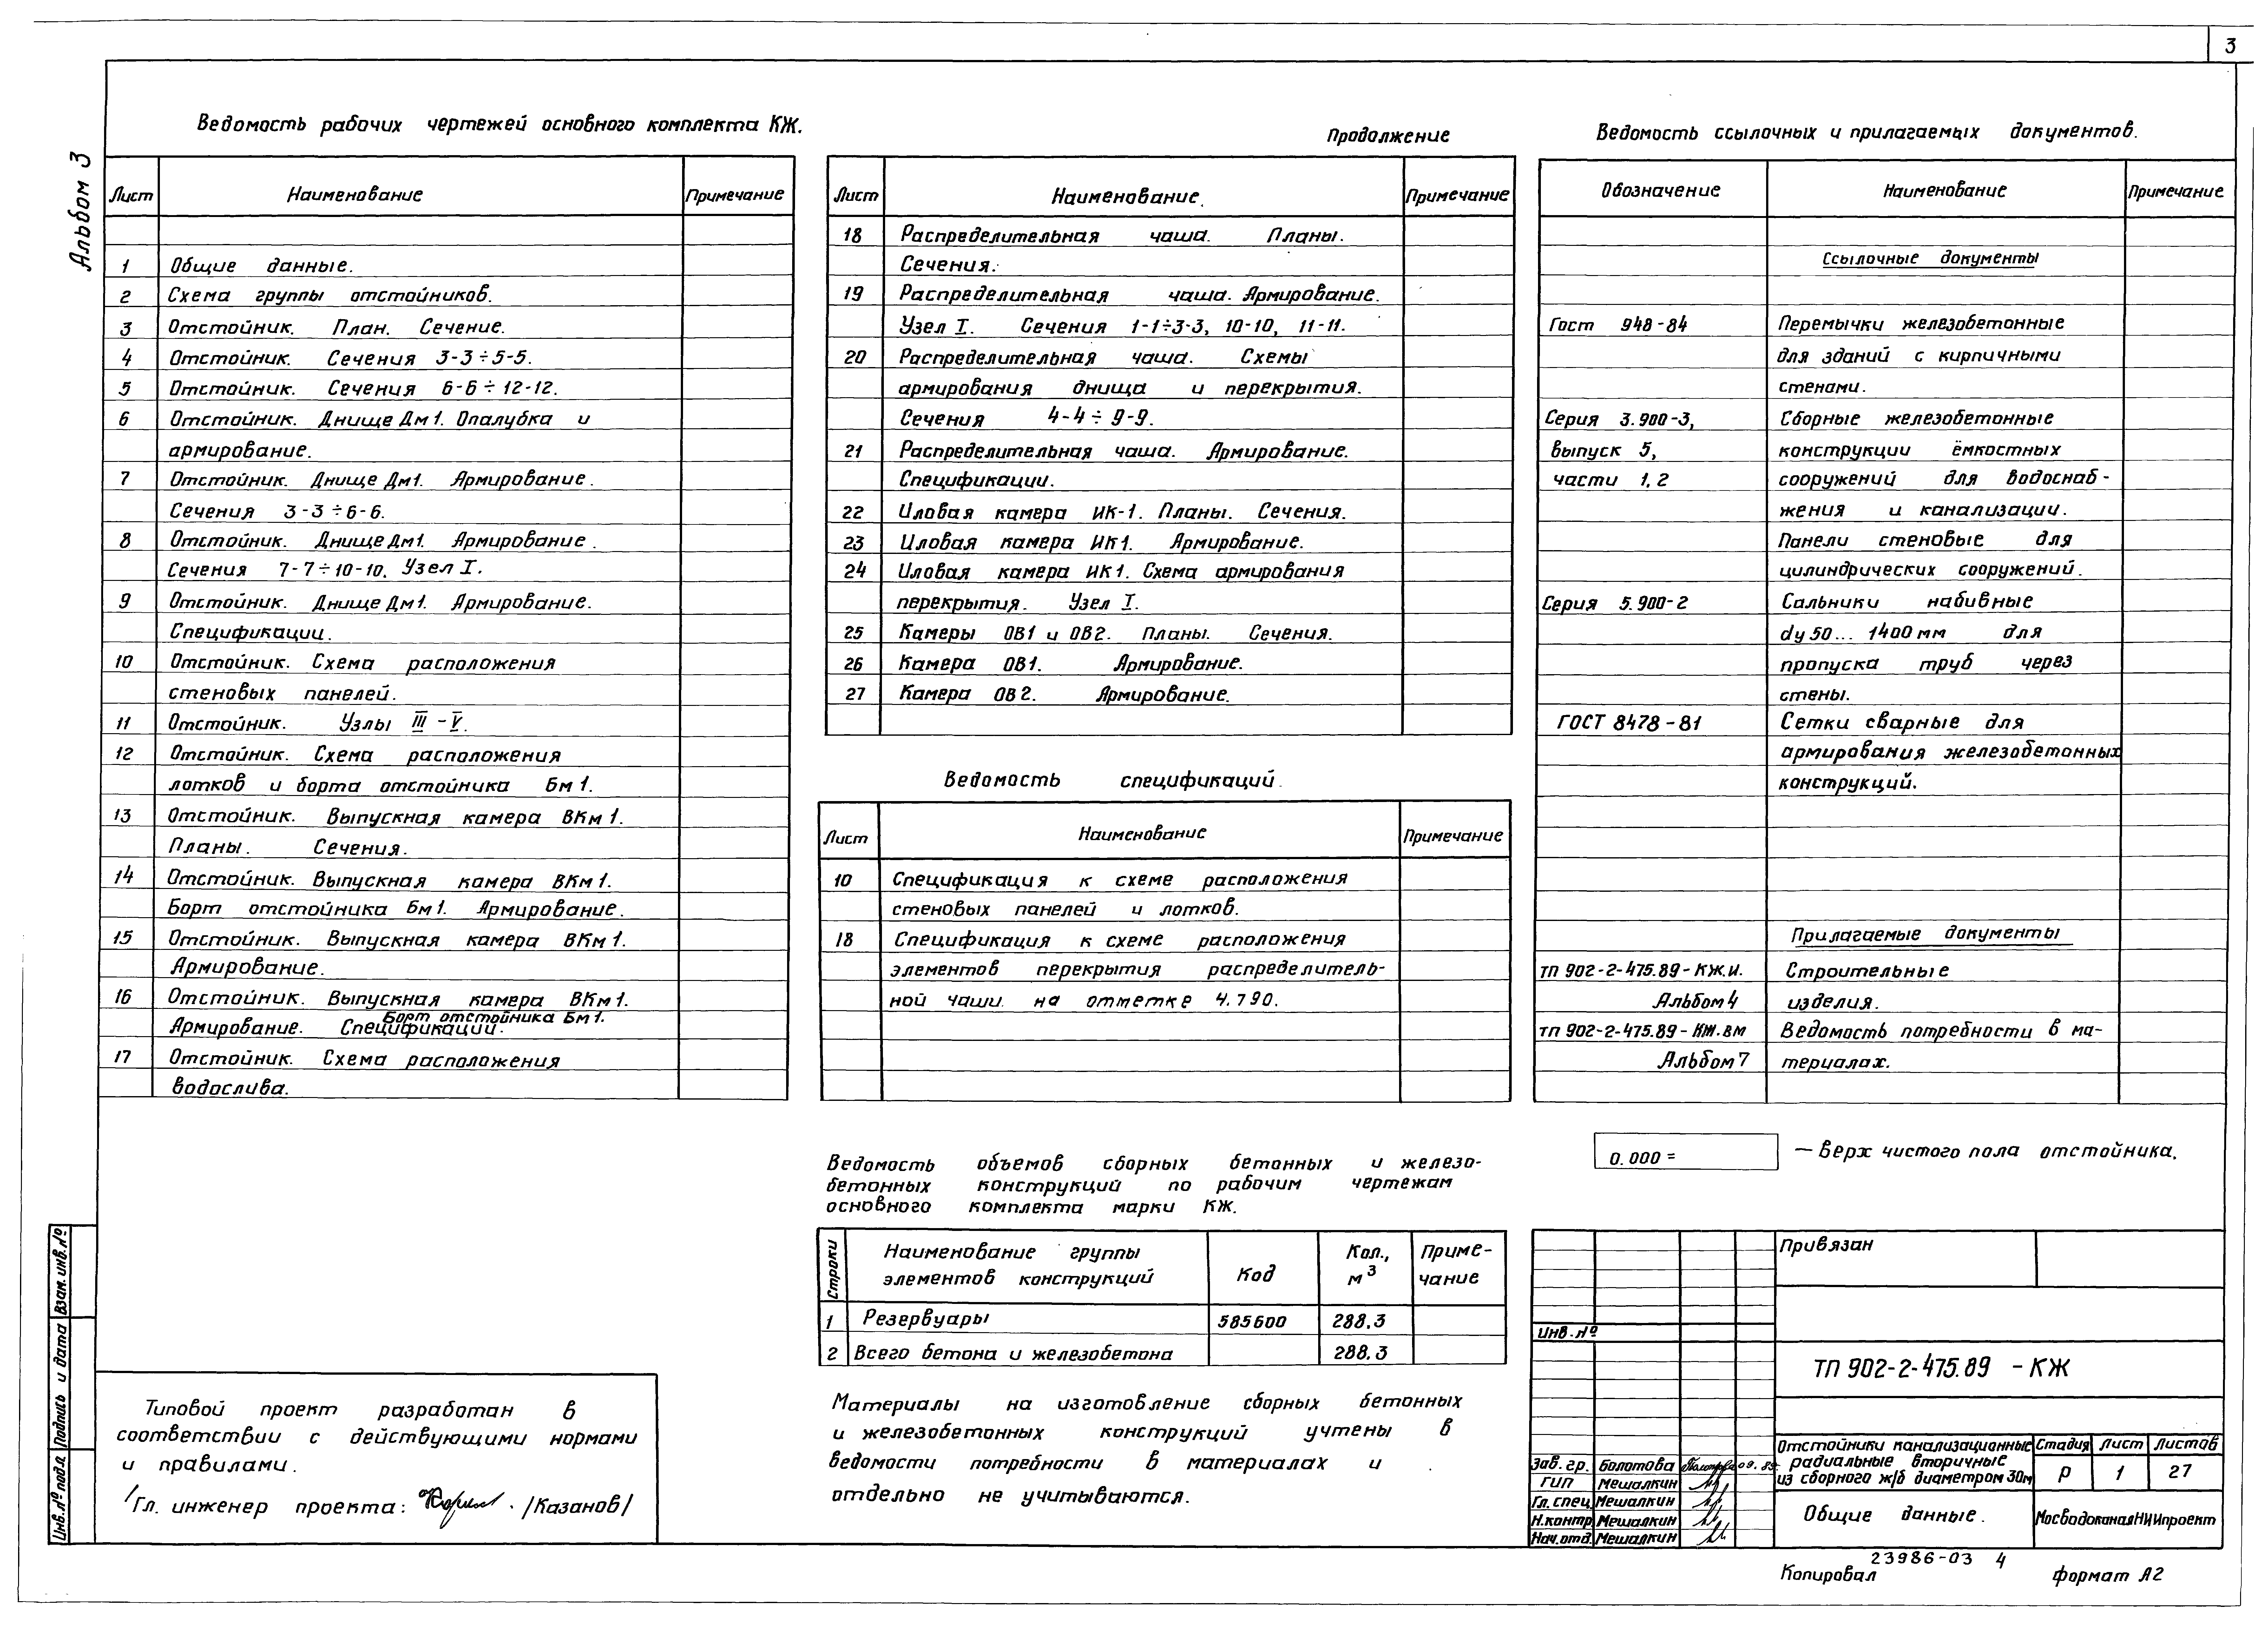 3
Альбом 3
Ведомость рабочих чертежей основного комплекта КЖ.
Лист Наименование Примечание
1 Общие данные.
2 Схема группы отстойников.
3 Отстойник. План. Сечение.
4 Отстойник. Сечения 3-3÷5-5.
5 Отстойник. Сечения 6-6÷12-12.
6 Отстойник. Днище Дм1. Опалубка и
армирование.
7 Отстойник. Днище Дм1. Армирование.
Сечения 3-3÷6-6.
8 Отстойник. Днище Дм1. Армирование.
Сечения 7-7÷10-10. Узел I.
9 Отстойник. Днище Дм1. Армирование.
Спецификации.
10 Отстойник. Схема расположения
стеновых панелей.
11 Отстойник. Узлы III-V.
12 Отстойник. Схема расположения
лотков и борта отстойника Бм1.
13 Отстойник. Выпускная камера ВКм1.
Планы. Сечения.
14 Отстойник. Выпускная камера ВКм1.
Борт отстойника Бм1. Армирование.
15 Отстойник. Выпускная камера ВКм1.
Армирование.
16 Отстойник. Выпускная камера ВКм1.
Борт отстойника Бм1.
Армирование. Спецификации.
17 Отстойник. Схема расположения
водослива.
Продолжение
Лист Наименование. Примечание
18 Распределительная чаша. Планы.
Сечения.
19 Распределительная чаша. Армирование.
Узел I. Сечения 1-1÷3-3, 10-10, 11-11.
20 Распределительная чаша. Схемы
армирования днища и перекрытия.
Сечения 4-4÷9-9.
21 Распределительная чаша. Армирование.
Спецификации.
22 Иловая камера ИК-1. Планы. Сечения.
23 Иловая камера ИК1. Армирование.
24 Иловая камера ИК1. Схема армирования
перекрытия. Узел I.
25 Камеры ОВ1 и ОВ2. Планы. Сечения.
26 Камера ОВ1. Армирование.
27 Камера ОВ2. Армирование.
Ведомость спецификаций.
Лист Наименование Примечание
10 Спецификация к схеме расположения
стеновых панелей и лотков.
18 Спецификация к схеме расположения
элементов перекрытия распределитель-
ной чаши. на отметке 4.790.
Ведомость ссылочных и прилагаемых документов.
Обозначение Наименование Примечание
Ссылочные документы
Гост 948-84 Перемычки железобетонные
для зданий с кирпичными
стенами.
Серия 3.900-3, Сборные железобетонные
выпуск 5, конструкции ёмкостных
части 1,2 сооружений для водоснаб-
жения и канализации.
Панели стеновые для
цилиндрических сооружений.
Серия 5.900-2 Сальники набивные
dу 50... 1400 мм для
пропуска труб через
стены.
ГОСТ 8478-81 Сетки сварные для
армирования железобетонных
конструкций.
Прилагаемые документы
ТП 902-2-475.89-КЖ.И. Строительные
Альбом 4 изделия.
ТП 902-2-475.89-КЖ.ВМ Ведомость потребности в ма-
Альбом 7 териалах.
0.000 = — верх чистого пола отстойника.
Ведомость объемов сборных бетонных и железо-
бетонных конструкций по рабочим чертежам
основного комплекта марки КЖ.
Строки Наименование группы элементов конструкций Код Кол., м³ Приме-чание
1 Резервуары 585600 288.3
2 Всего бетона и железобетона 288.3
Материалы на изготовление сборных бетонных
и железобетонных конструкций учтены в
ведомости потребности в материалах и
отдельно не учитываются.
Типовой проект разработан в
соответствии с действующими нормами
и правилами.
Гл. инженер проекта: /Казанов/
Взам. инв. №
Подпись и дата
Инв. № подл.
Привязан
Инв. №
ТП 902-2-475.89 - КЖ
Зав. гр. Болотова 09.89
ГИП Мешалкин
Гл. спец. Мешалкин
Н.контр Мешалкин
Нач.отд. Мешалкин
Отстойники канализационные
радиальные вторичные
из сборного ж/б диаметром 30м
Стадия Лист Листов
Р 1 27
Общие данные.
МосводоканалНИИпроект
23986-03 4
Копировал формат А2